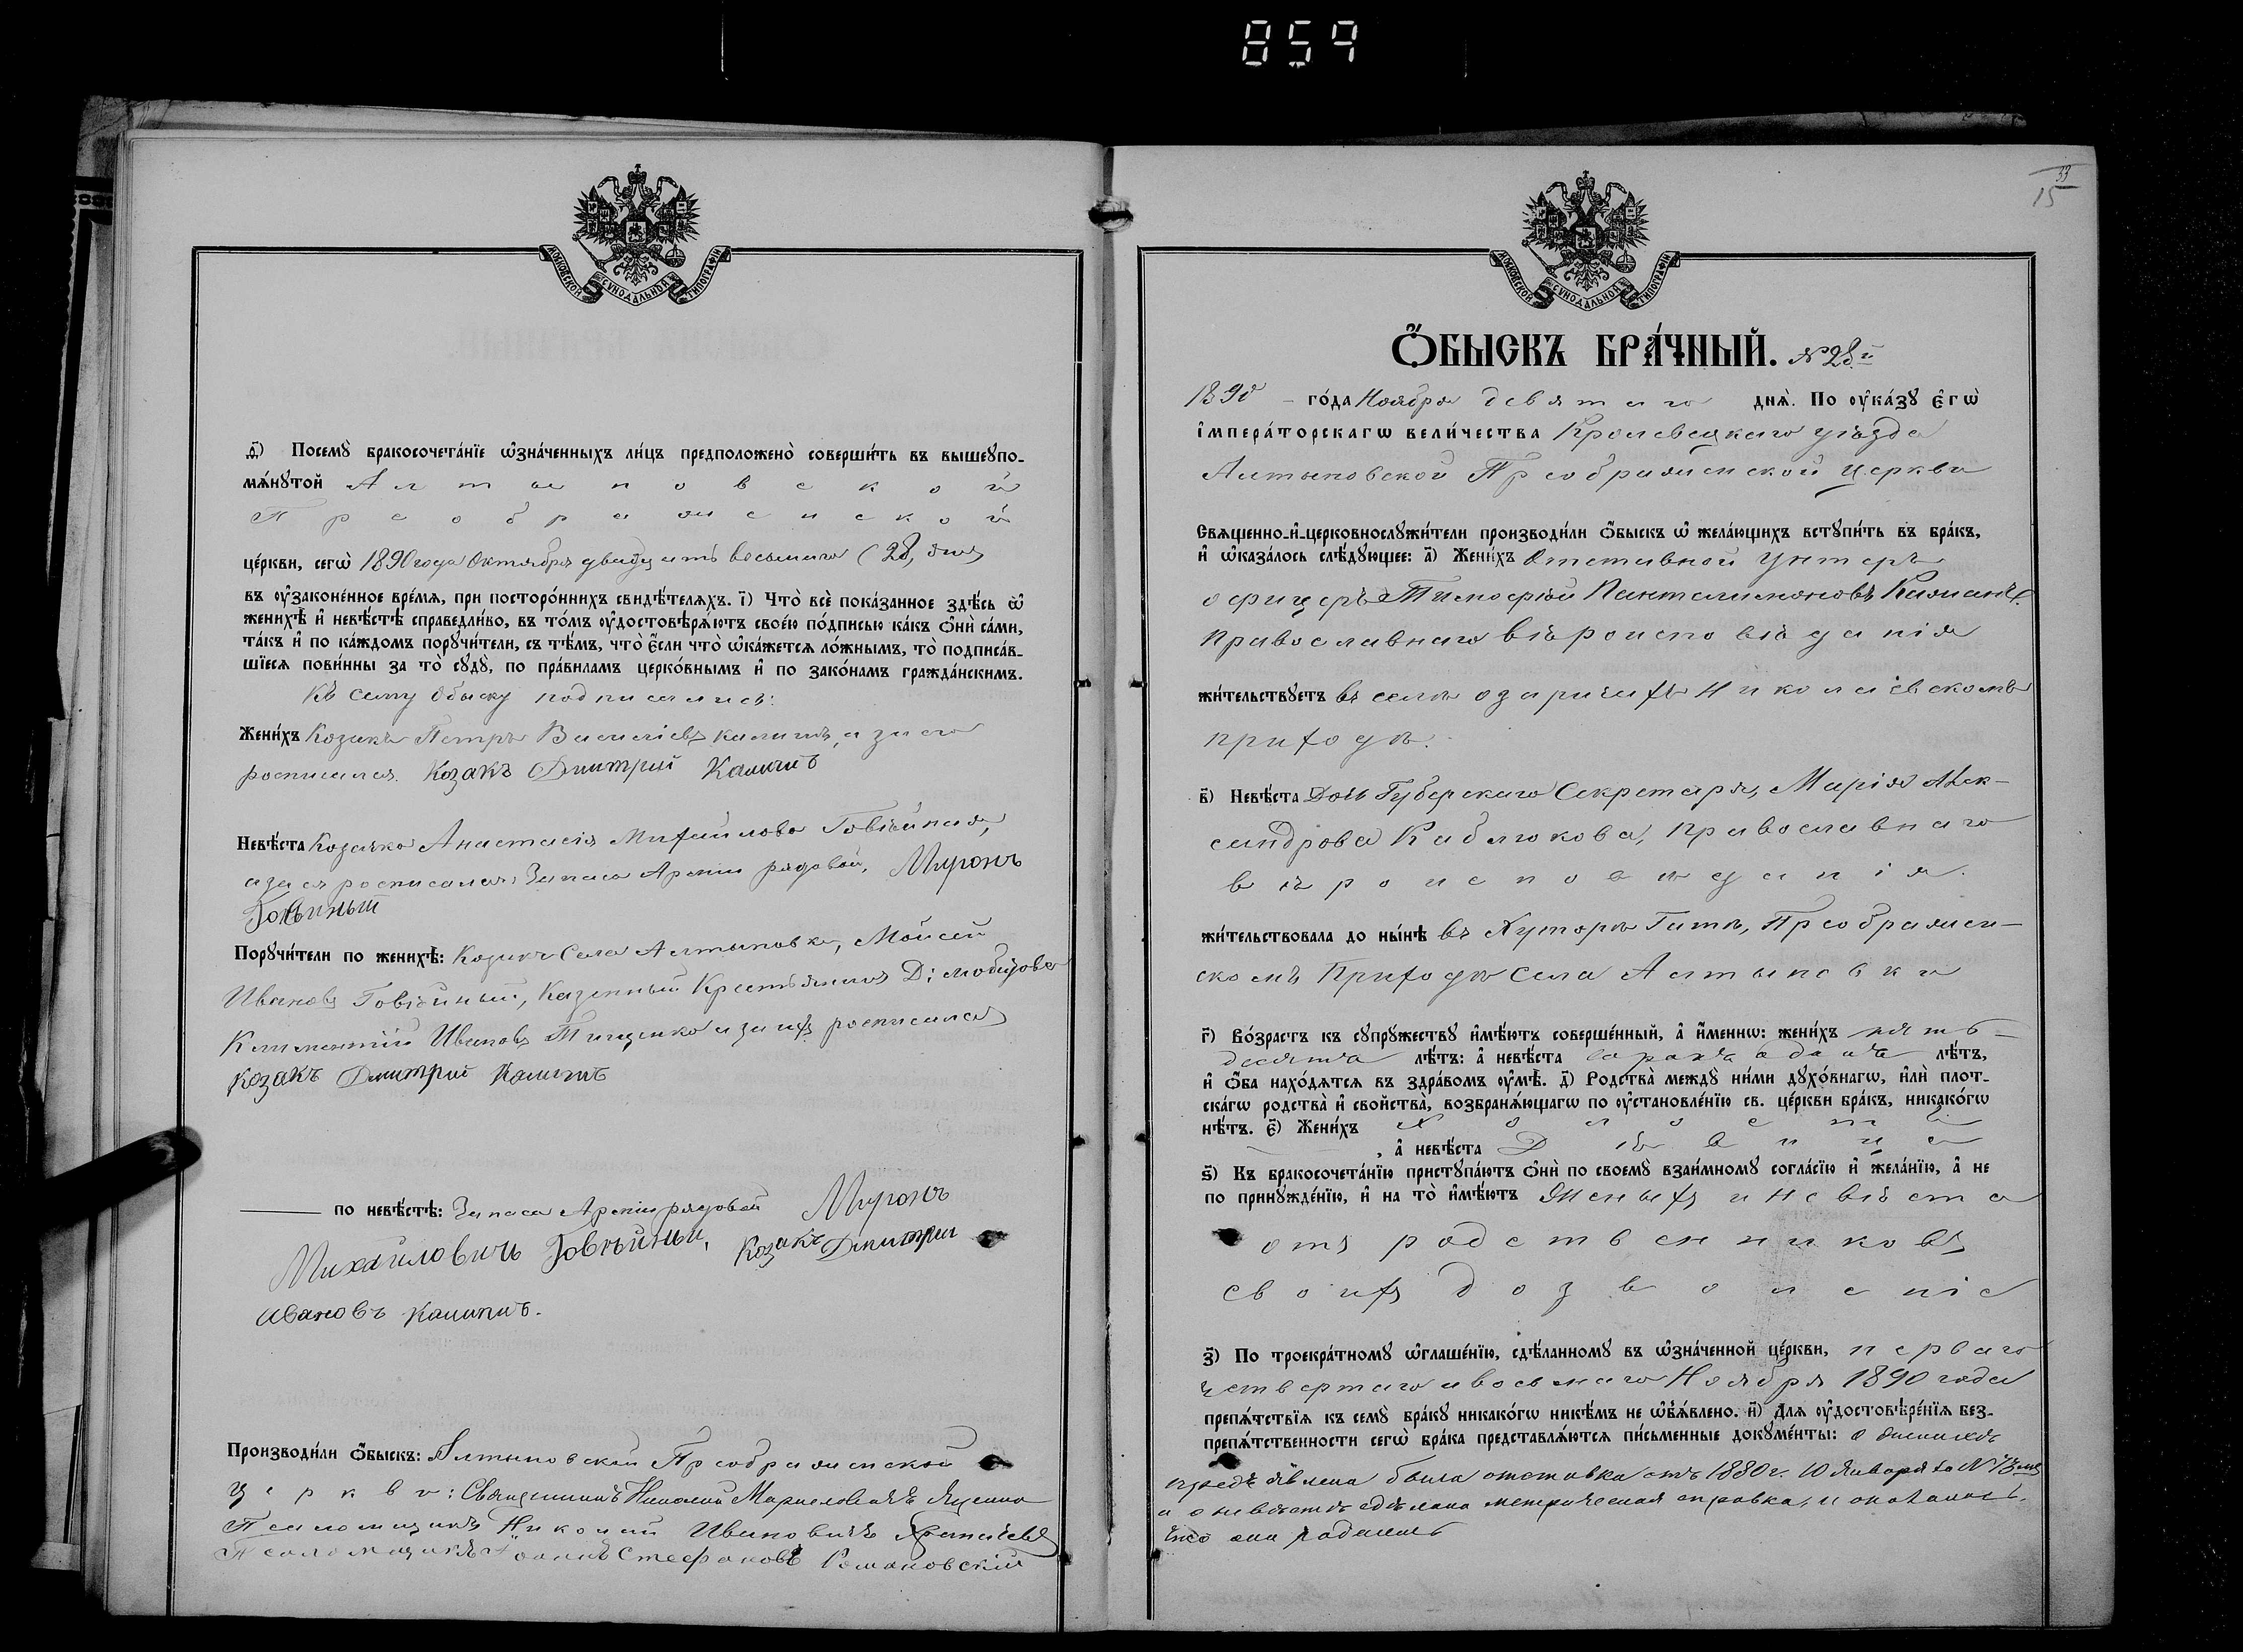 859
МОСКОВСКОЙ СУНОДАЛЬНОЙ ТИПОГРАФІИ
ѳ҃) Посемꙋ̀ бракосочета́нїе ѡ҆зна́ченныхъ ли́цъ предположено̀ соверши́ть въ вышеꙋпо-
мѧ́нꙋтой Алтыновской
Преображенской
це́ркви, сегѡ̀ 1890 года Октября двадцать восьмаго (28) дня
въ ᲂу҆законе́нное вре́мѧ, при посторо́ннихъ свидѣ́телѧхъ. і҃) Что̀ всѐ пока́занное здѣ́сь ѡ҆
женихѣ̀ и҆ невѣ́стѣ справедли́во, въ то́мъ ᲂу҆достовѣрѧ́ютъ свое́ю по́дписью ка́къ ѻ҆нѝ са́ми,
та́къ и҆ по ка́ждомъ порꙋчи́тели, съ тѣ́мъ, что̀ є҆́сли что̀ ѡ҆ка́жетсѧ ло́жнымъ, то̀ подписа́в-
шїесѧ пови́нны за то̀ сꙋдꙋ̀, по пра́виламъ церко́внымъ и҆ по зако́намъ гражда́нскимъ.
Къ сему обыску подписались:
Жени́хъ Козакъ Петръ Василіевъ Калишъ, а за его
росписался Козакъ Дмитрій
Невѣ́ста Козачка Анастасія Михайлова Говѣйная,
а за ея росписался: Запаса Арміи рядовой, Миронъ
Говѣйный
Порꙋчи́тели по женихѣ̀: Козакъ Села Алтыновки, Моисей
Ивановъ Говѣйный, Казенный Крестьянинъ Д:
Климентій Ивановъ Тищенко а за ихъ росписался
Козакъ Дмитрій
по невѣ́стѣ: Запаса Арміи рядовой Миронъ
Михаиловичъ Говѣйный, Козакъ Дмитрій
Ивановъ
Производи́ли ѻ҆́быскъ: Алтыновской Преображенской
Церкви: Священникъ Николай
Псаломщикъ Николай Ивановичъ
Псаломщикъ Іоаннъ Стефановъ Романовскій
33
15
МОСКОВСКОЙ СУНОДАЛЬНОЙ ТИПОГРАФІИ
Ѻ҆́БЫСКЪ БРА́ЧНЫЙ. № 28.й
1890 – го́да Ноября девятаго днѧ̀. По ᲂу҆ка́зꙋ є҆гѡ̀
і҆мпера́торскагѡ вели́чества Кролевецкаго уѣзда
Алтыновской Преображенской Церкви
Свѧщенно-и҆-церковнослꙋжи́тели производи́ли ѻ҆́быскъ ѡ҆ жела́ющихъ встꙋпи́ть въ бра́къ,
и҆ ѡ҆каза́лось слѣ́дꙋющее: а҃) Жени́хъ Отставной Унтеръ
офицеръ Тимофей Пантелимоновъ
Православнаго вѣроисповѣданія
жи́тельствꙋетъ въ селѣ Озаричахъ Николаевскомъ
приходѣ.
в҃) Невѣ́ста Дочь Губерскаго Секретаря, Марія Алек-
сандрова Каблюкова, православнаго
вѣроисповѣданія.
жи́тельствовала до ны́нѣ въ Хуторѣ Гиты, Преображен-
скомъ Приходѣ села Алтыновки
г҃) Во́зрастъ къ сꙋпрꙋ́жествꙋ и҆мѣ́ютъ соверше́нный, а҆ и҆́меннѡ: жени́хъ пять-
десятъ лѣ́тъ: а҆ невѣ́ста сорокъ одинъ лѣ́тъ,
и҆ ѻ҆́ба нахо́дѧтсѧ въ здра́вомъ ᲂу҆мѣ̀. д҃) Родства̀ междꙋ̀ ни́ми дꙋхо́внагѡ, и҆лѝ пло́т-
скагѡ родства̀ и҆ сво́йства̀, возбранѧ́ющагѡ по ᲂу҆становле́нїю св. це́ркви бра́къ, никако́гѡ
нѣ́тъ. є҃) Жени́хъ Холостъ
, а҆ невѣ́ста Дѣвица
ѕ҃) Къ бракосочета́нїю пристꙋпа́ютъ ѻ҆нѝ по своемꙋ̀ взаи́мномꙋ согла́сїю и҆ жела́нїю, а҆ не
по принꙋжде́нїю, и҆ на то̀ и҆мѣ́ютъ Женихъ и невѣста
отъ родственниковъ
своихъ дозволеніе
з҃) По троекра́тномꙋ ѡ҆глаше́нїю, сдѣ́ланномꙋ въ ѡ҆зна́ченной це́ркви, перваго
четвертаго и восьмаго Ноября 1890 года
препѧ́тствїѧ къ семꙋ̀ бра́кꙋ никако́гѡ никѣ́мъ не ѡ҆б̾ѧ́влено. и҃) Длѧ ᲂу҆достовѣре́нїѧ без-
препѧ́тственности сегѡ̀ бра́ка представлѧ́ютсѧ пи́сьменные докꙋме́нты: о женихѣ
предъявлена была отставка отъ 1880 г. 10 Января за №
а о невѣстѣ сдѣлана метрическая справка, и оказалось,
что она родилась